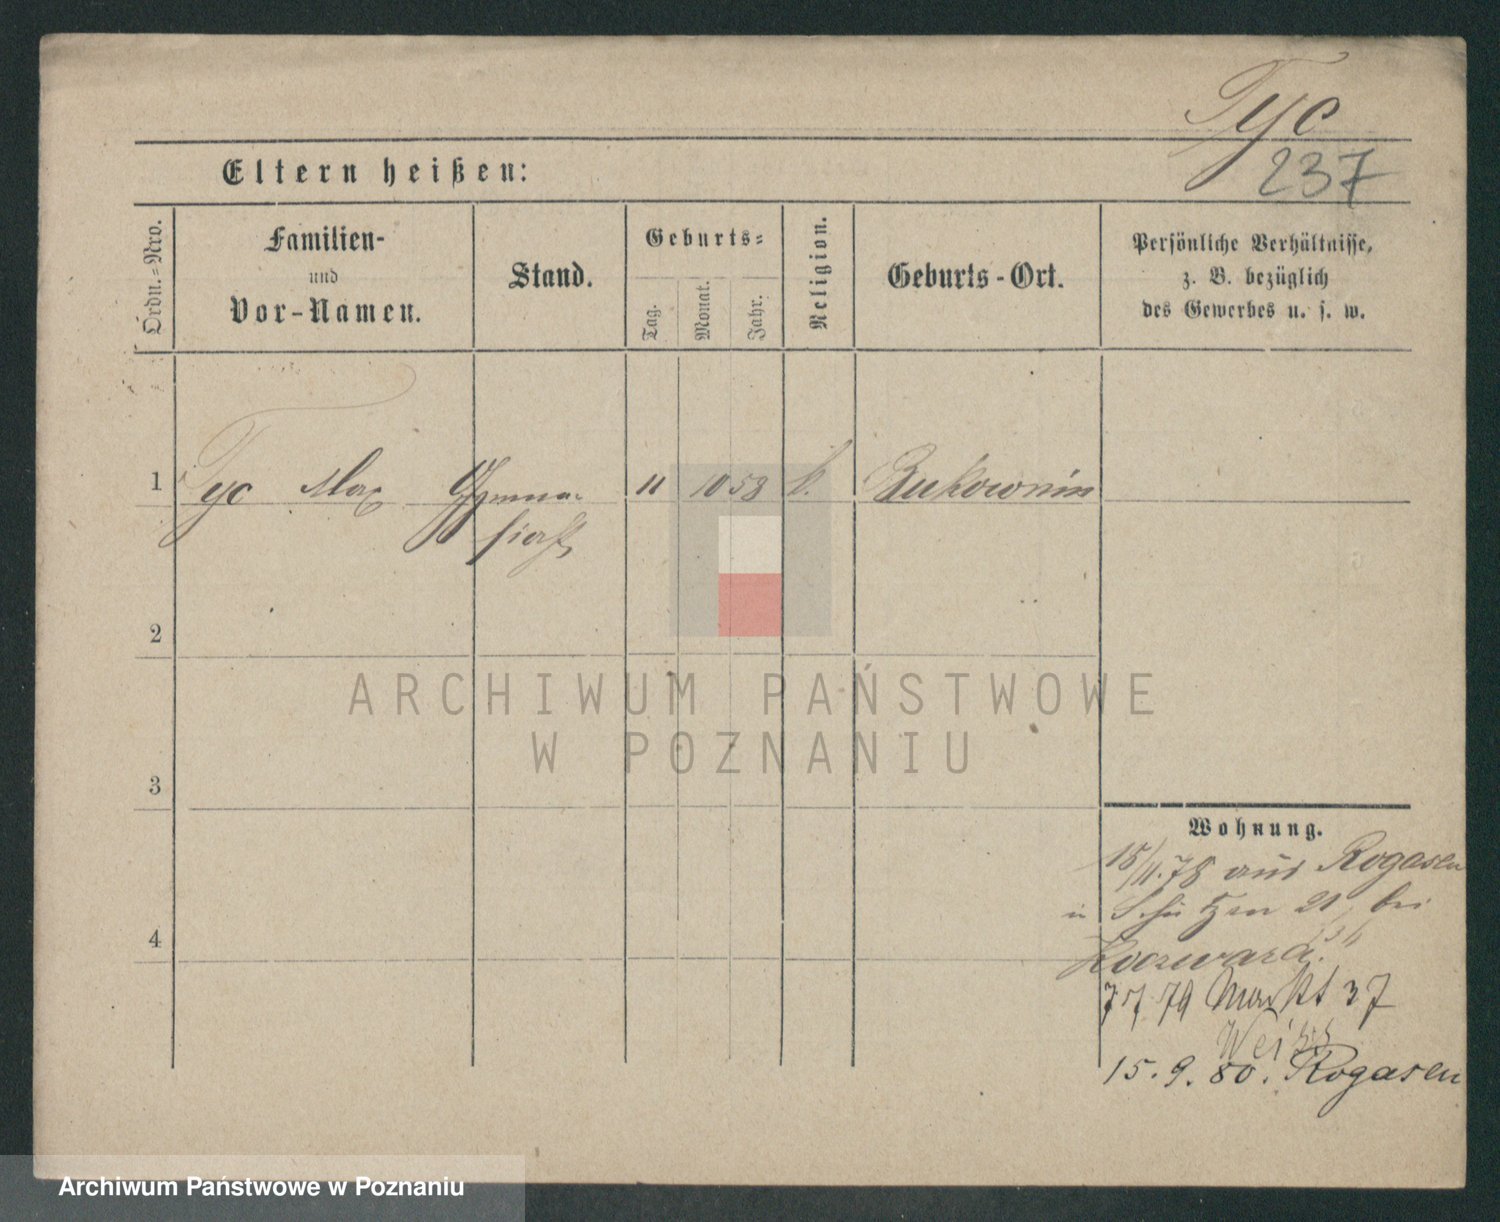 Tyc
237
Eltern heißen:
Ordn.=Nro.
Familien-
und
Vor-Namen.
Stand.
Geburts=
Tag.
Monat.
Jahr.
Religion.
Geburts-Ort.
Persönliche Verhältnisse,
z. B. bezüglich
des Gewerbes u. s. w.
1 Tyc Max Gymna-
siast
11 10 58 k. Bukownin
2
3
4
Wohnung.
15/11.78 aus Rogasen
in Schützen 21, bei
7.7.79 Markt 37
Weiss
15.9.80. Rogasen
ARCHIWUM PAŃSTWOWE
W POZNANIU
Archiwum Państwowe w Poznaniu